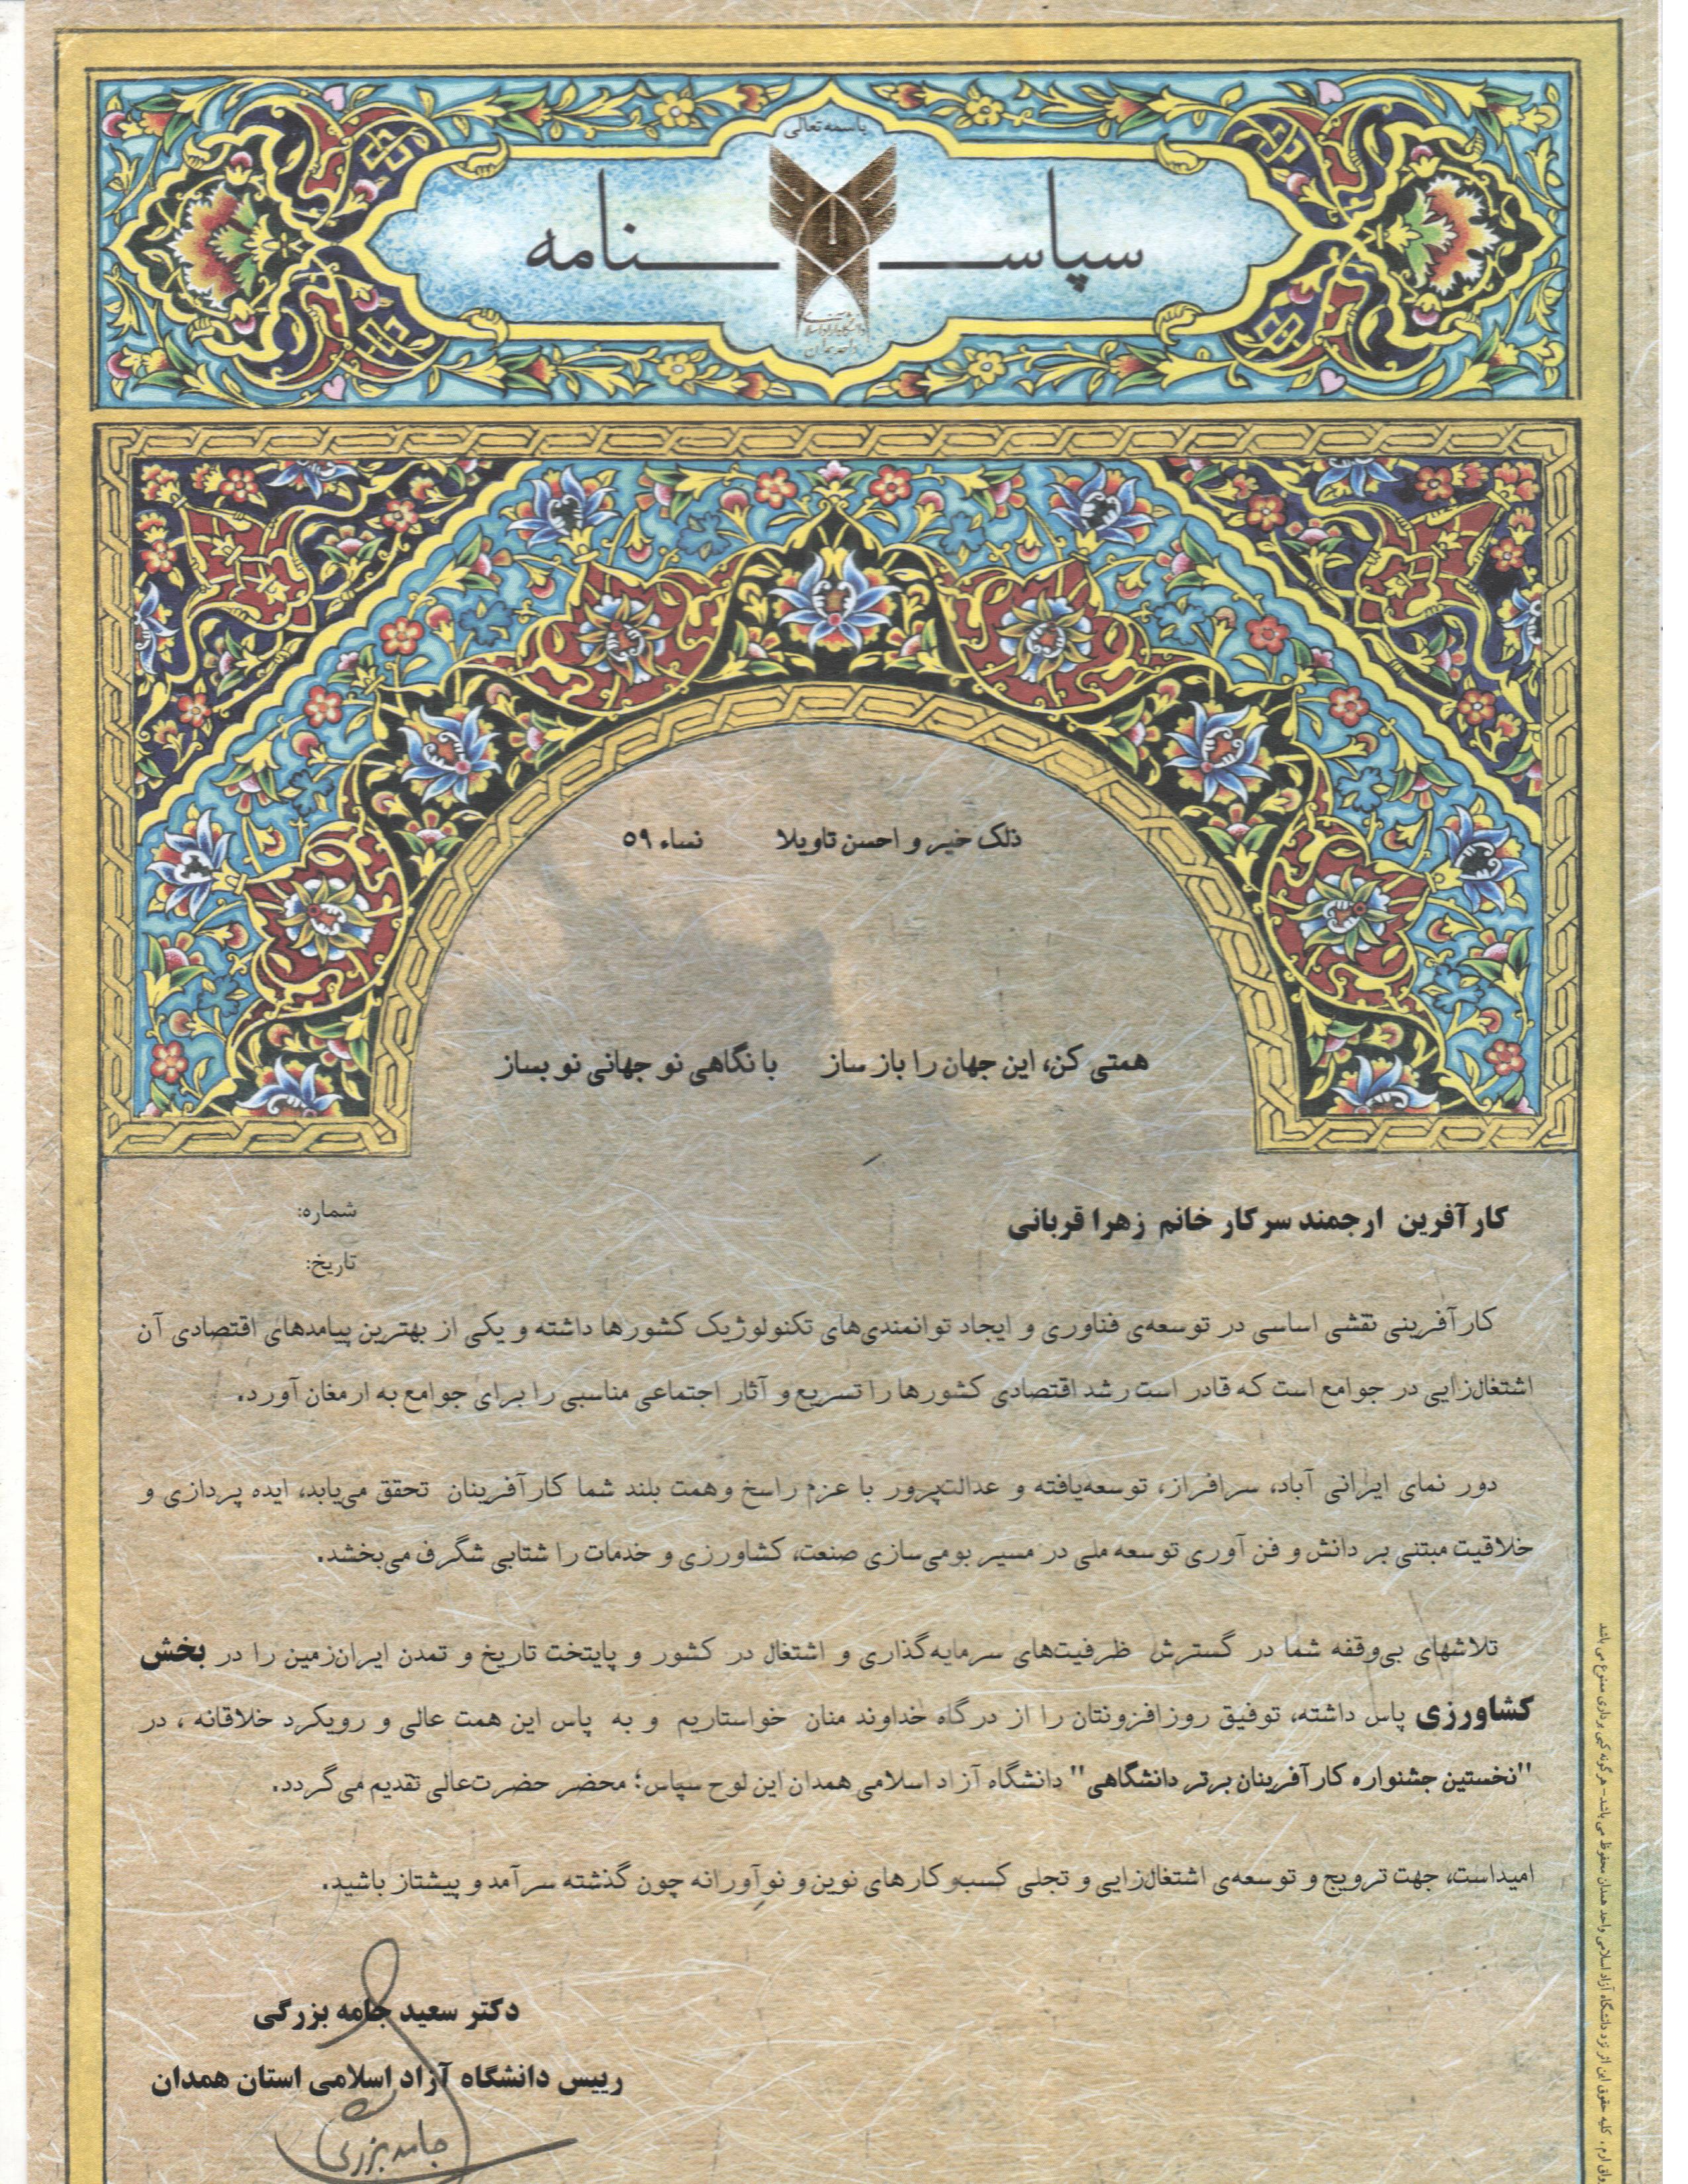 باسمه تعالی
سپاسنامه
ذلک خیر و احسن تاویلا نساء ۵۹
همتی کن، این جهان را باز ساز با نگاهی نو جهانی نو بساز
کارآفرین ارجمند سرکار خانم زهرا قربانی
شماره:
تاریخ:
کارآفرینی نقشی اساسی در توسعه‌ی فناوری و ایجاد توانمندی‌های تکنولوژیک کشورها داشته و یکی از بهترین پیامدهای اقتصادی آن
اشتغال‌زایی در جوامع است که قادر است رشد اقتصادی کشورها را تسریع و آثار اجتماعی مناسبی را برای جوامع به ارمغان آورد.
دور نمای ایرانی آباد، سرافراز، توسعه‌یافته و عدالت‌پرور با عزم راسخ وهمت بلند شما کارآفرینان تحقق می‌یابد، ایده پردازی و
خلاقیت مبتنی بر دانش و فن آوری توسعه ملی در مسیر بومی‌سازی صنعت، کشاورزی و خدمات را شتابی شگرف می‌بخشد.
تلاشهای بی‌وقفه شما در گسترش ظرفیت‌های سرمایه‌گذاری و اشتغال در کشور و پایتخت تاریخ و تمدن ایران‌زمین را در بخش
کشاورزی پاس داشته، توفیق روزافزونتان را از درگاه خداوند منان خواستاریم و به پاس این همت عالی و رویکرد خلاقانه ، در
"نخستین جشنواره کارآفرینان برتر دانشگاهی" دانشگاه آزاد اسلامی همدان این لوح سپاس؛ محضر حضرت‌عالی تقدیم می‌گردد.
امیداست، جهت ترویج و توسعه‌ی اشتغال‌زایی و تجلی کسب‌وکارهای نوین و نوآورانه چون گذشته سرآمد و پیشتاز باشید.
دکتر سعید جامه بزرگی
رییس دانشگاه آزاد اسلامی استان همدان
جامه بزرگی
کلیه حقوق این اثر نزد دانشگاه آزاد اسلامی واحد همدان محفوظ می باشد - هرگونه کپی برداری ممنوع می باشد